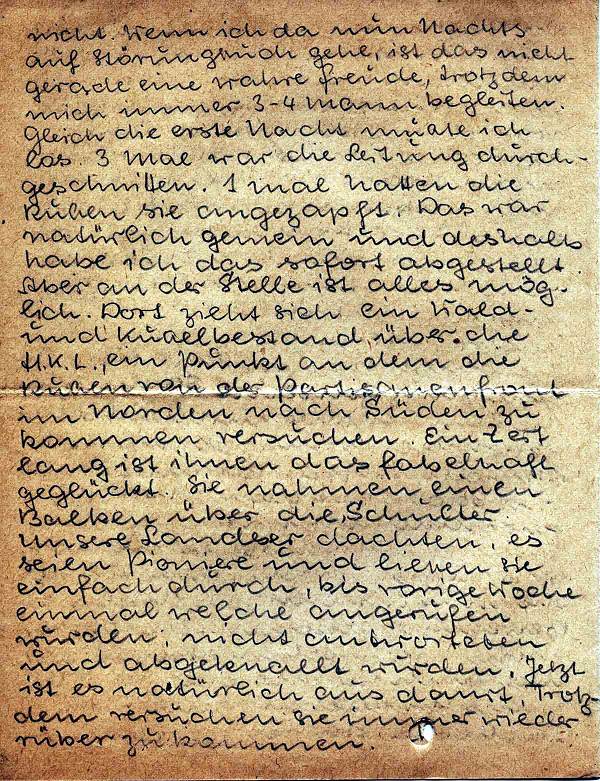 nicht. Wenn ich da nun Nachts
auf Störungsuch gehe, ist das nicht
gerade eine wahre Freude, trotzdem
mich immer 3-4 Mann begleiten.
Gleich die erste Nacht mußte ich
los. 3 Mal war die Leitung durch-
geschnitten. 1 mal hatten die
Rußen sie angezapft. Das war
natürlich gemein und deshalb
habe ich das sofort abgestellt
Aber an der Stelle ist alles mög-
lich. Dort zieht sich ein Wald-
und Kußelbestand über die
H.K.L., ein Punkt an dem die
Rußen von der Partisanenfront
im Norden nach Süden zu
kommen versuchen. Ein Zeit
lang ist ihnen das fabelhaft
geglückt. Sie nahmen einen
Balken über die Schulter
unsere Landser dachten, es
seien Pioniere und ließen sie
einfach durch, bis vorige Woche
einmal welche angerufen
wurden, nicht antworteten
und abgeknallt wurden. Jetzt
ist es natürlich aus damit. Trotz-
dem versuchen sie immer wieder
rüber zu kommen.